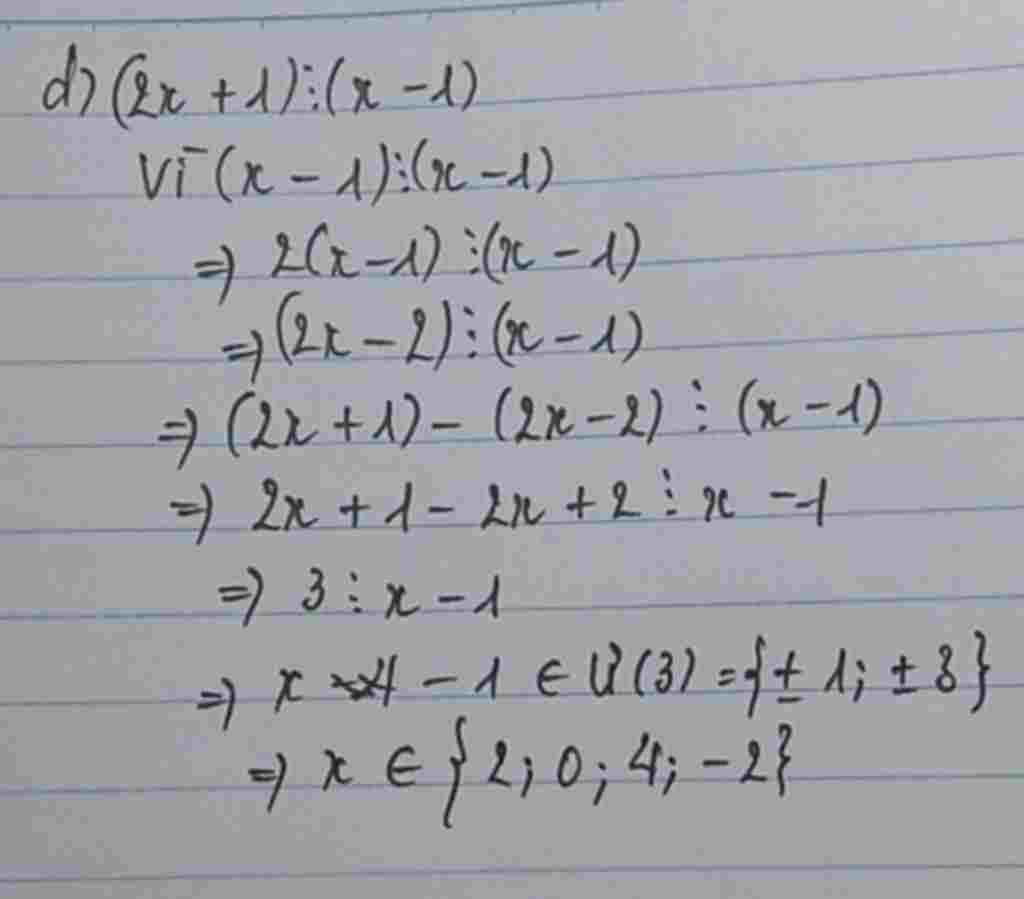 d) (2x + 1) ⋮ (x - 1)
Vì (x - 1) ⋮ (x - 1)
=> 2(x - 1) ⋮ (x - 1)
=> (2x - 2) ⋮ (x - 1)
=> (2x + 1) - (2x - 2) ⋮ (x - 1)
=> 2x + 1 - 2x + 2 ⋮ x - 1
=> 3 ⋮ x - 1
=> x - 1 ∈ Ư(3) = {± 1; ± 3}
=> x ∈ {2; 0; 4; -2}